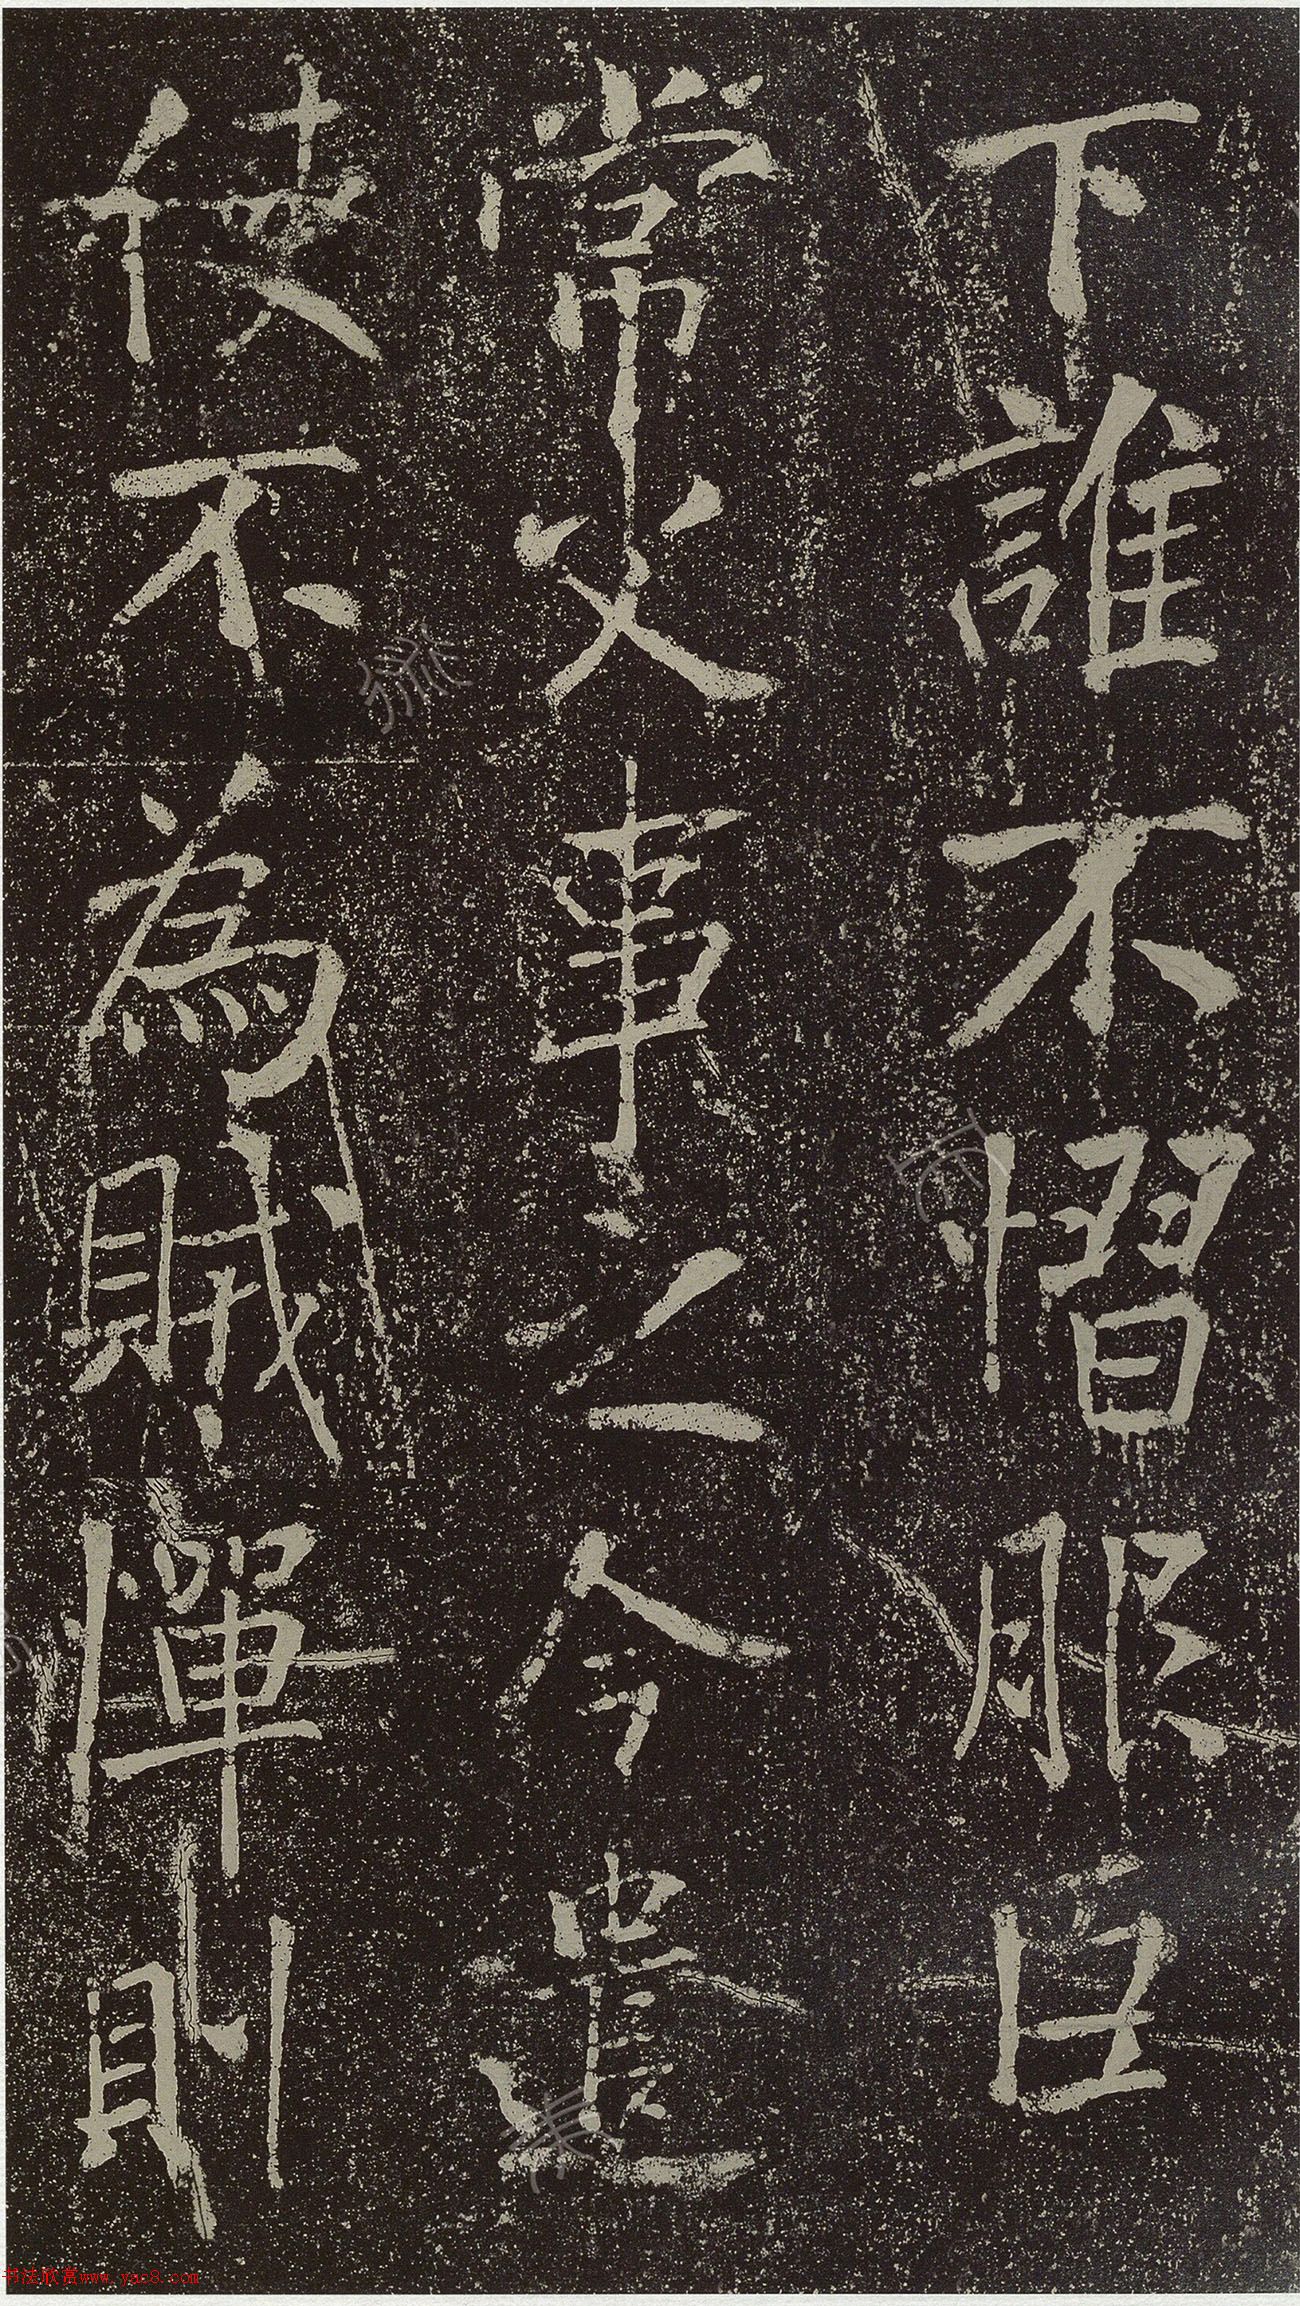 下誰不慴服臣
常父事之今遣
使不為賊憚則
书法欣赏www.yac8.com